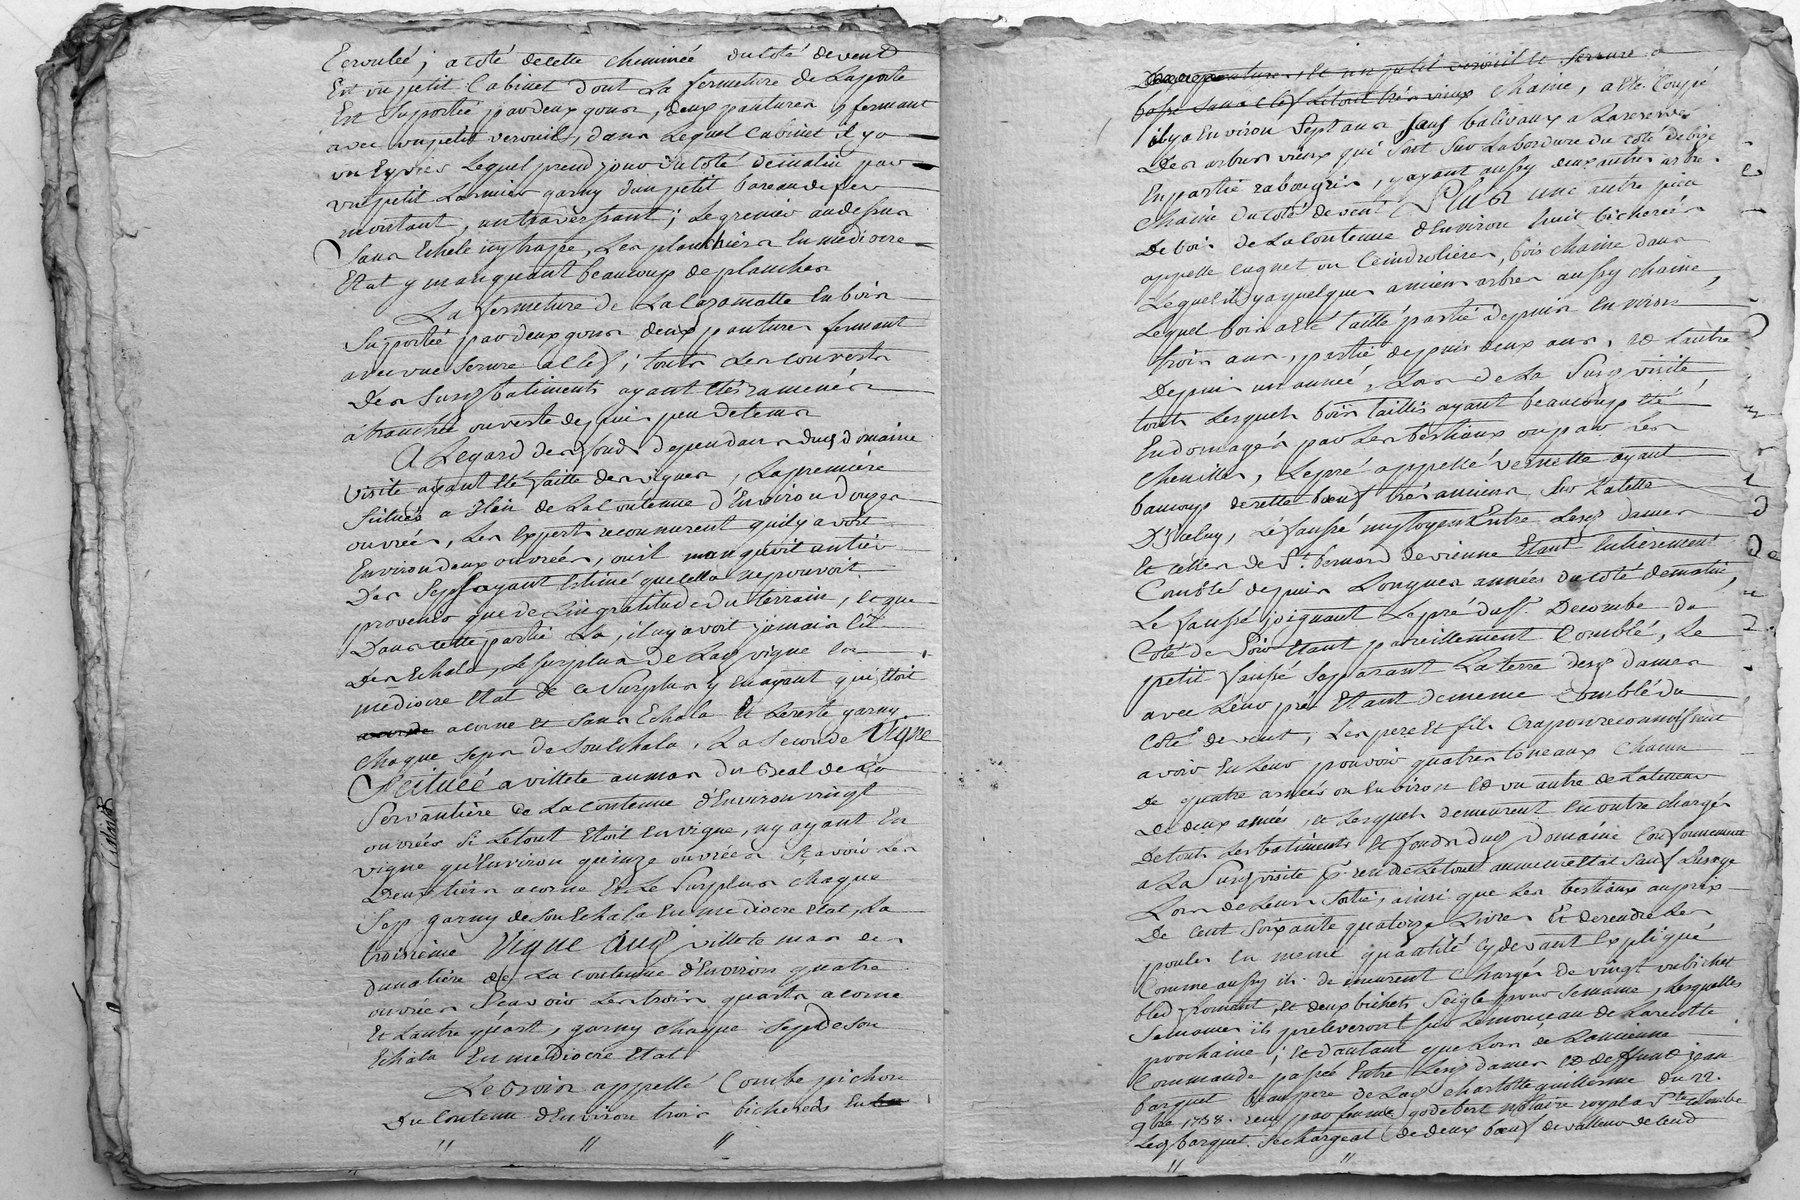 Ecroulée; a coté de cette cheminée du coté de vend
Est un petit Cabinet dont La fermeture de La porte
Est Suportée par deux gons, deux pantures fermant
avec un petit verouil, dans Lequel Cabinet il y a
un Eyvier Lequel prend jour du Coté de matin par
un petit Larmier garny d'un petit bareau de fer
montant, un traversant; Le grenier au dessus
Sans Echele ny trape, Les planchiers En mediocre
Etat y manquant beaucoup de planches
La fermeture de La Cazamatte En bois
Suportée par deux gons deux pantures fermant
avec une Serure a Clef; touts Les couverts
Des Susd batiments ayant étés ramenés
a tranchée ouverte depuis peu de tems
A Legard des fonds dependans dud domaine
visite ayant été faitte des vignes, La premiere
Scituée a de La Contenue d'Environ douze
ouvrées, Les Experts reconnurent quil y avoit
Environ deux ouvrées, ou il manquoit un tier
Des Seps ayant Estimé que cella ne pouvoit
provenir que de L'ingratitude du terrain, et que
Dans cette partie La, il ny avoit jamais eû
Des Echalas, Le Surplus de Lad vigne En
mediocre Etat de ce Surplus y En ayant qui étoit
acorne et Sans Echala Et Le reste garny
chaque Seps de Son Echala. La Seconde Vigne
Scituée a villete au mas du de La
Servantiére de La Contenue d'Environ vingt
ouvrées Si Le tout Etoit En vigne, ny ayant En
vigne qu'Environ quinze ouvrées Scavoir Les
Deux tiers acorne Et Le Surplus chaque
Sep garny de Son Echala En mediocre Etat, La
troisiéme Vigne aud villete mas des
de La Contenue d'Environ quatre
ouvrées Scavoir Les trois quarts acorne
Et L'autre quart, garny chaque Sep de Son
Echala En mediocre Etat.
Le Bois appellé Combe pichon
Du Contenu d'Environ trois bicherées En
" " "
pantures, et un petit verouil Le Serure a
Sans Clef Le tout trés vieux chaine, a été Coupé
il y a Environ Sept ans Sauf balivaux a La reserve
Des arbres vieux qui Sont Sur La bordure du coté de bize
En partie rabougris, y ayant aussy deux autres arbres
Chaine du coté de vent; Plus une autre piece
De bois de La Contenue d'Environ huit bicherées
appellé ou Ceindroliéres, bois chaine dans
Lequel il y a quelques anciens arbres aussy chaine,
Lequel bois a été taillé partie depuis Environ
trois ans, partie depuis deux ans, et L'autre
Depuis un année, Lors de La Susd visitte
touts Lesquels bois taillis ayant beaucoup été
Endomagés par Les bestiaux ou par Les
chenilles, Le pré appellé vernette ayant
baucoup de rette boeuf trés anciens, Sur
, Le faussé mytoyen Entre Lesd dames
Et celles de St. bernard de vienne Etant Entierement
Comblé depuis Longues années du coté de matin,
Le faussé joignant Le pré du Sr. Decombe du
Coté de Soir Etant pareillement Comblé, Le
petit faussé Separant La terre desd dames
avec Leur pré Etant de meme Comblé du
Coté de vent, Les pere Et fils Crapon reconnoissent
avoir En Leur pouvoir quatre toneaux chacun
De quatre anées ou Environ et un autre de La teneur
De deux anées, et Lesquels demeurent En outre chargés
De touts Les batiments Et fonds dud Domaine Conformement
a La Susd visite pr. rendre Le tout au meme Etat Sauf L'usage
Lors de Leur Sortie, ainsi que Les bestiaux au prix
De Cent Soixante quatorze Livres Et de rendre Les
poules En meme quantité cy devant Expliqué
Comme aussy ils demeurent Chargés de vingt un bichet
bled froment, et deux bichets Seigle pour Semance, Lesquelles
Semances ils préleveront Sur Le monceau de La recolte
prochaine; Et d'autant que Lors de L'ancienne
Commande passée Entre Lesd dames et deffunt jean
barquet pere de Lad charlotte guillerme du 22.
9bre 1758. reçu par feu me godebert notaire royal a Ste. Colombe
Led barquet Se chargeat de deux boeufs de valleur de Cent
" "